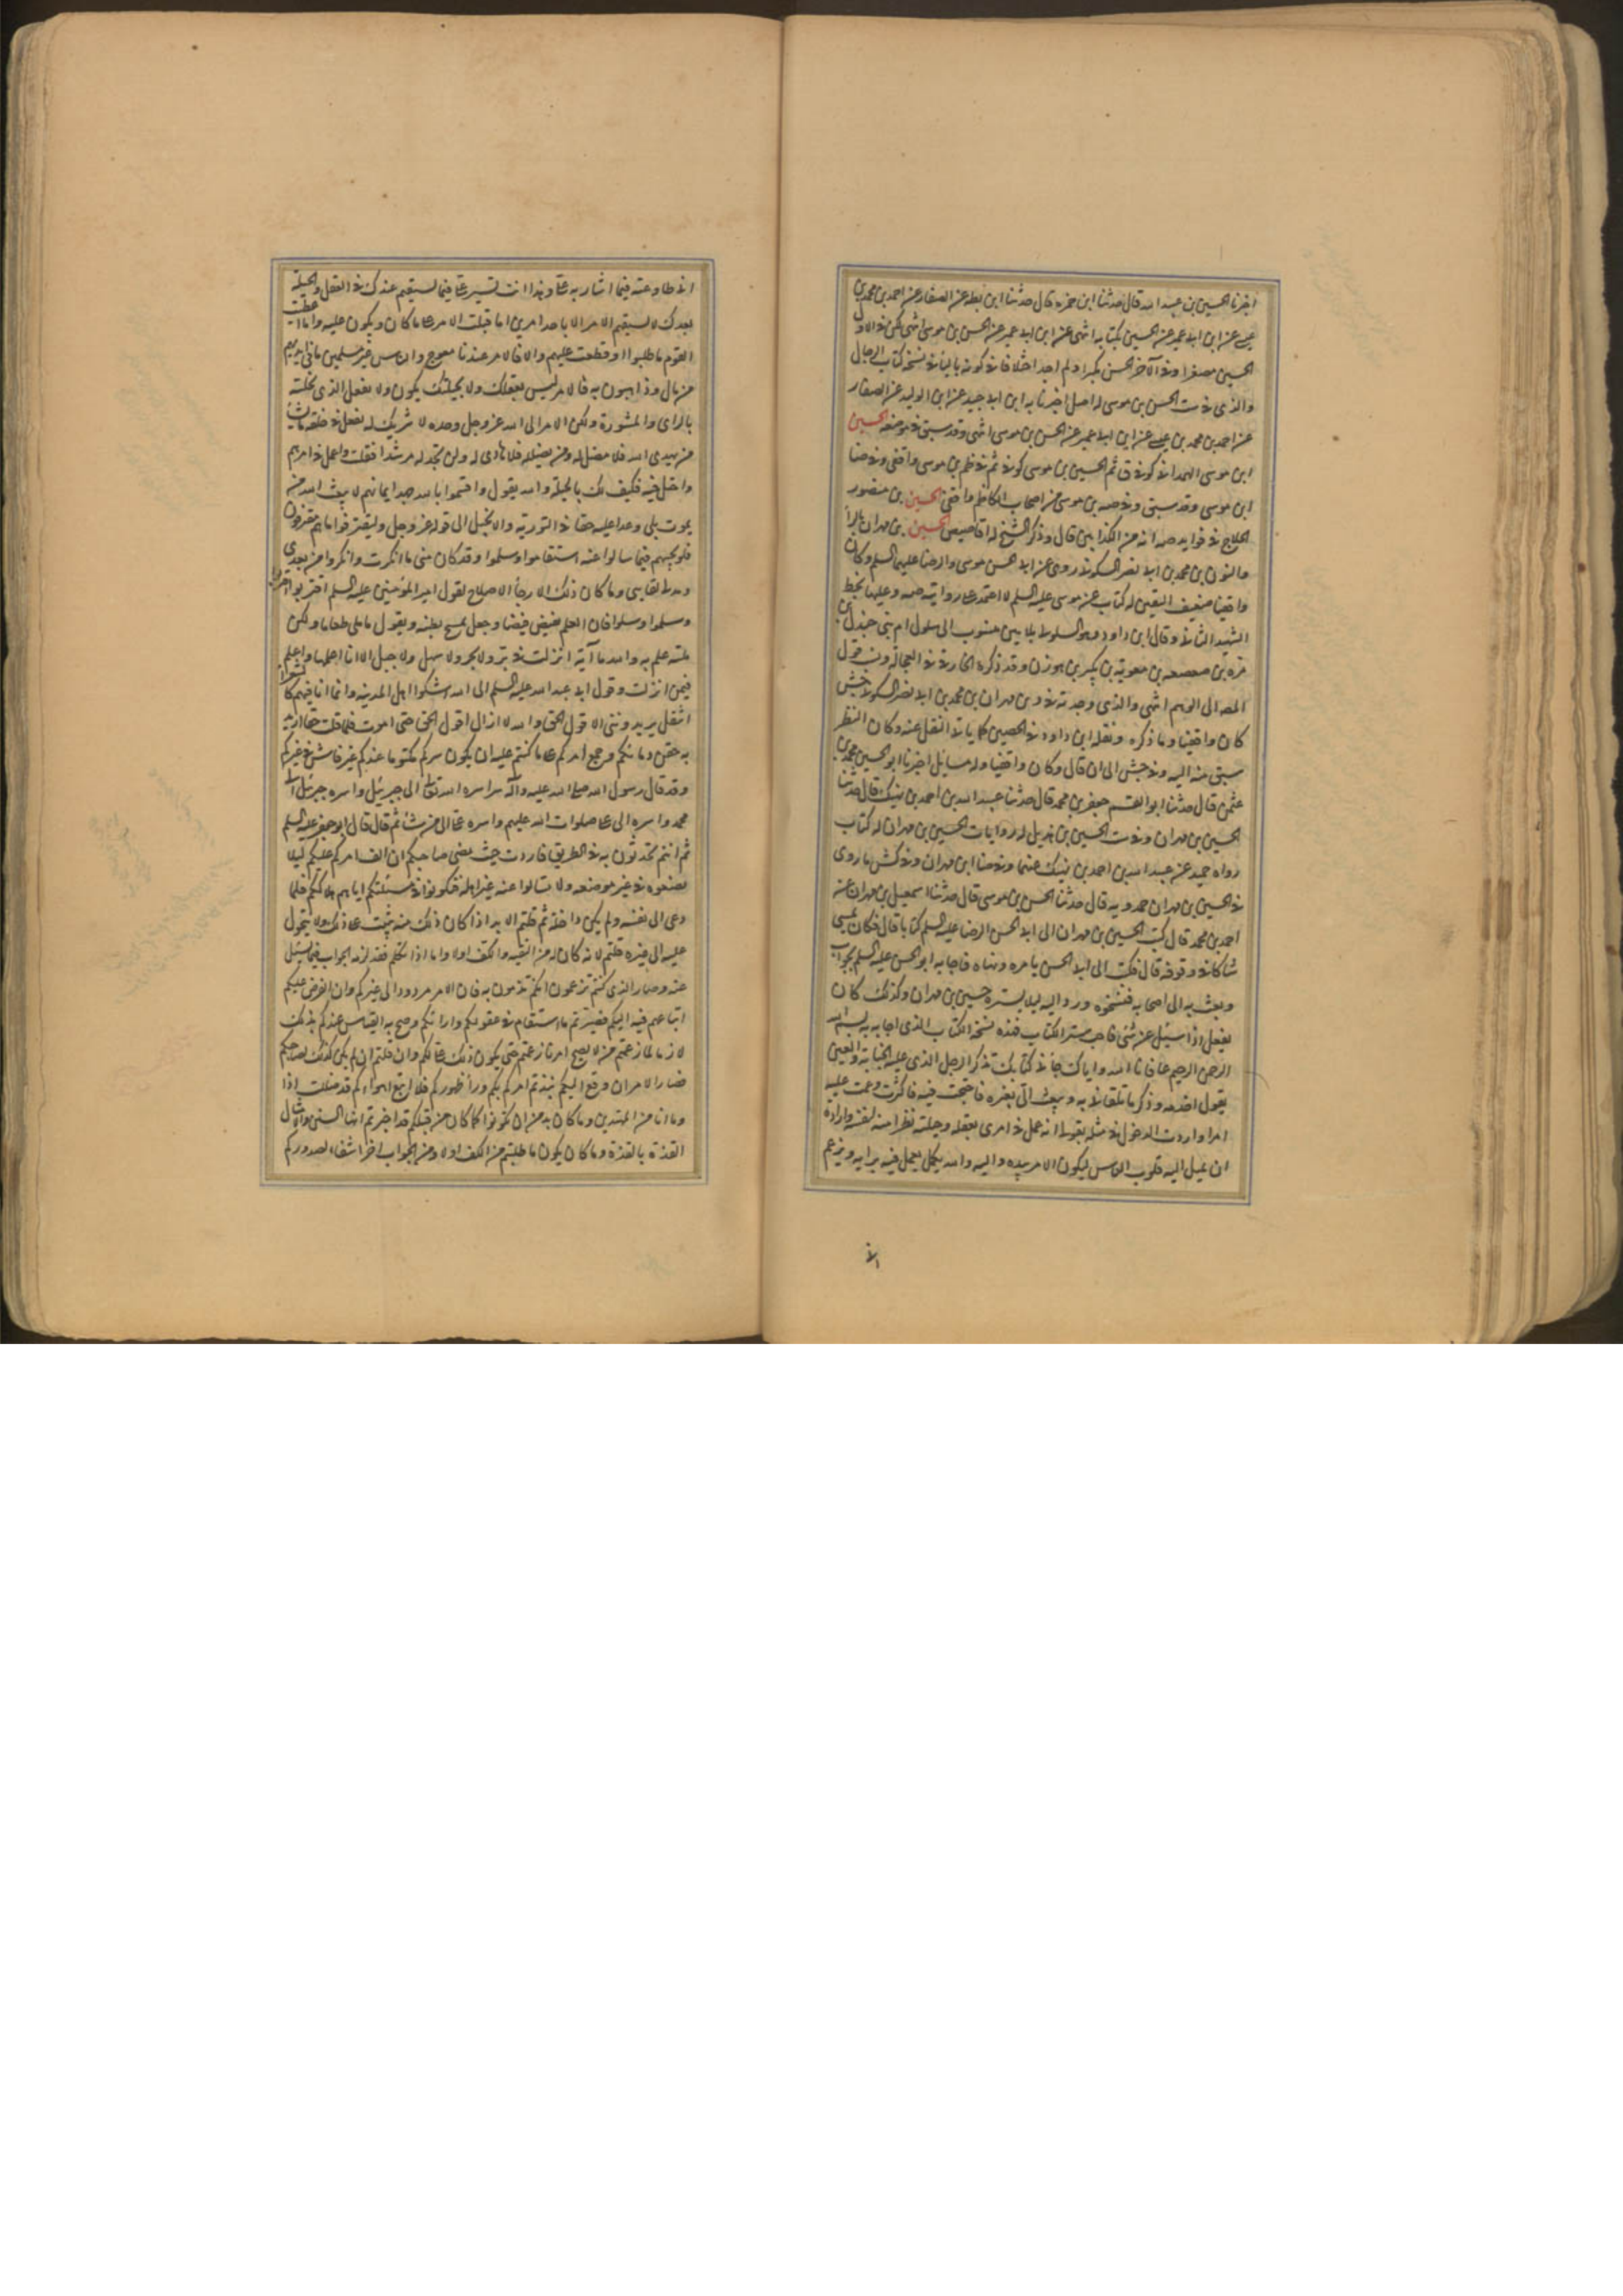 اخبرنا الحسين بن عبيد الله قال حدثنا ابن حمزه قال حدثنا ابن بطه عن الصفار عن احمد بن محمد بن
عيسى عن ابن ابى عمير عن الحسين بكتابه انتهى عن ابن ابى عمير عن الحسن بن موسى انتهى لكن فى الاول
الحسين مصغرا وفى الآخر الحسن مكبرا ولم اجد اختلافا فى كونه بالياء فى نسخه كتاب الرجال
والذى فى ست الحسن بن موسى له اصل اخبرنا به ابن ابى جيد عن ابن الوليد عن الصفار
عن احمد بن محمد بن عيسى عن ابن ابى عمير عن الحسن بن موسى انتهى وقد سبق فى موضعه الحسين
ابن موسى الهمدانى كوفى ق ثم الحسين بن موسى كوفى ثم فى ظم بن موسى واقفى وفى ضا
ابن موسى وقد سبق وفى صه بن موسى من اصحاب الكاظم واقفى الحسين بن منصور
الحلاج فى فوايد صه انه من الكذابين قال وذكر الشيخ له اقاصيص الحسين بن مهران بالراء
والنون بن محمد بن ابى نصر السكونى روى عن ابى الحسن موسى والرضا عليهما السلم وكان
واقفيا ضعيف اليقين له كتاب عن موسى عليه السلم لا اعتمد على روايته صه وعليها بخط
الشهيد الثانى وقال ابن داود وهو السلولى بلامين منسوب الى سلول ام بنى جندل بن
مره بن صعصعه بن معوية بن بكر بن هوازن وقد ذكره الحازمى فى العجاله ونسب قول
المصه الى الوهم انتهى والذى وجدته فى د بن مهران بن محمد بن ابى نصر السكونى جش
كان واقفيا وما ذكره ونقله ابن داود فى الحصين كما ياتى النقل عنه وكان النظر
سبق منه اليه وفى جش الى ان قال وكان واقفيا وله مسايل اخبرنا ابو الحسين محمد بن
عثمن قال حدثنا ابو القسم جعفر بن محمد قال حدثنا عبيد الله بن احمد بن نهيك قال حدثنا
الحسين بن مهران وفى ست الحسين بن هذيل له روايات الحسين بن مهران له كتاب
رواه حميد عن عبيد الله بن احمد بن نهيك عنهما وفى ضا ابن مهران وفى كش ما روى
فى الحسين بن مهران حمدويه قال حدثنا الحسن بن موسى قال حدثنا اسمعيل بن مهران عن
احمد بن محمد قال كتب الحسين بن مهران الى ابى الحسن الرضا عليه السلم كتابا قال فكان يمشى
شاكا فى وقوفه قال فكتب الى ابى الحسن يامره وينهاه فاجابه ابو الحسن عليه السلم بجواب
وبعث به الى اصحابه فنسخوه ورد اليه ليلا يستره حسين بن مهران وكذلك كان
يفعل اذا سئل عن شئ فاحب ستر الكتاب فهذه نسخه الكتاب الذى اجابه به بسم الله
الرحمن الرحيم عافانا الله واياك جاءنى كتابك تذكر الرجل الذى عليه الخيانة والعين
يقول اخذته وذكر ما تلقانى به وتبعث الى بغيره فاحتججت فيه فاكثرت وعبت عليه
امرا واردت الدخول فى مثله يقول انه عمل فى امرى بعقله وحيلته نظرا منه لنفسه وارادة
ان تميل اليه قلوب الناس ليكون الامر بيده واليه والله يكل يعمل فيه برايه ويزعم
انى طاوعته فيما اشار به على وهذا انت تشير على فيما يستقيم عندك فى العقل والحيله
بعدك لا يستقيم الامر الا باحد امرين اما قبلت الامر على ما كان ويكون عليه واما اعطيت
القوم ما طلبوا وقطعت عليهم والا فالامر عندنا معوج والناس غير مسلمين ما فى ايديهم
من مال وذاهبون به فالامر ليس بعقلك ولا بحيلتك يكون ولا نفعل الذى تحيلته
بالراى والمشورة ولكن الامر الى الله عز وجل وحده لا شريك له يفعل فى خلقه ما يشاء
من يهدى الله فلا مضل له ومن يضلله فلا هادى له ولن تجد له مرشدا فقلت واعمل فى امرهم
واحتل فيه فكيف لك بالحيلة والله يقول واقسموا بالله جهد ايمانهم لا يبعث الله من
يموت بلى وعدا عليه حقا فى التورية والانجيل الى قوله عز وجل وليقترفوا ما هم مقترفون
فلو تجيبهم فيما سالوا عنه استقاموا وسلموا وقد كان منى ما انكرت وانكروا من بعدى
ومد لى لقاءى وما كان ذلك الا رجاء الاصلاح لقول امير المؤمنين عليه السلم اقتربوا اقتربوا
وسلموا وسلوا فان العلم يفيض فيضا وجعل يمسح بطنه ويقول ما ملى طعاما ولكن
ملئته علم به والله ما آية انزلت فى بر ولا بحر ولا سهل ولا جبل الا انا اعلمها واعلم
فيمن انزلت وقول ابى عبد الله عليه السلم الى الله اشكوا اهل المدينه وانما انا فيهم كالشعر
انتقل يريدوننى الا قول الحق والله لا ازال اقول الحق حتى اموت فلما قلت حقا اريد
به حقن دمائكم وجمع امركم على ما كنتم عليه ان يكون سركم مكتوما عندكم غير فاش فى غيركم
وقد قال رسول الله صلى الله عليه وآله سرا اسره الله تعالى الى جبرئيل واسره جبرئيل الى
محمد واسره الى على صلوات الله عليهم واسره على الى من شاء ثم قال قال ابو جعفر عليه السلم
ثم انتم تحدثون به فى الطريق فاردت حيث مضى صاحبكم ان الف امركم عليكم ليلا
تضعوه فى غير موضعه ولا تسالوا عنه غير اهله فتكونوا فى مسئلتكم اياهم هلكتم فلما
دعى الى نفسه ولم يكن داخله ثم قلتم لا بد اذا كان ذلك منه يثبت على ذلك ولا يتحول
عليه الى غيره قلتم لانه كان له من التقيه والكف اولا واما اذا تكلم فقد لزمه الجواب فيما يسئل
عنه وصار الذى كنتم تزعمون انكم تذمون به فان الامر مردود الى غيركم وان الفرض عليكم
اتباعهم فيه اليكم فصيرتم ما استقام فى عقولكم وارائكم وصح به القياس عندكم بذلك
لازما لما زعمتم من لا يصح امرنا زعمتم حتى يكون ذلك على لكم وان قلتم ان لم يكن كذلك لصاحبكم
فصار الامر ان وقع اليكم نبذتم امر ربكم وراء ظهوركم فلا اتبع اهواءكم قد ضللت اذا
وما انا من المهتدين وما كان بد من ان تكونوا كما كان من قبلكم قد اخبرتم انها السنن والامثال
القذة بالقذة وما كان يكون ما طلبتم من الكف اولا ومن الجواب اخرا شفاء لصدوركم